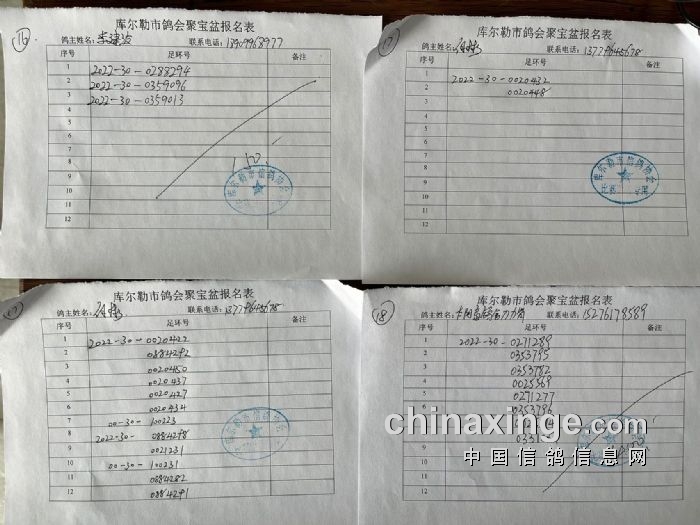 16
库尔勒市鸽会聚宝盆报名表
鸽主姓名: 联系电话: 13909968977
序号 足环号 备注
1 2022-30-0288294
2 2022-30-0359096
3 2022-30-0359013
4
5
6
7
8
9
10
11
12
库尔勒市信鸽协会
17
库尔勒市鸽会聚宝盆报名表
鸽主姓名: 联系电话: 13779645678
序号 足环号 备注
1 2022-30-0020432
2 0020448
3
4
5
6
7
8
9
10
11
12
库尔勒市信鸽协会
17
库尔勒市鸽会聚宝盆报名表
鸽主姓名: 联系电话: 13779645678
序号 足环号 备注
1 2022-30-0020422
2 0884292
3 0020450
4 0020437
5 0020427
6 0020434
7 00-30-100223
8 2022-30-0884298
9 0021231
10 00-30-100231
11 0884282
12 0884291
18
库尔勒市鸽会聚宝盆报名表
鸽主姓名: 联系电话: 15276178589
序号 足环号 备注
1 2022-30-0271289
2 0353795
3 0353782
4 0025369
5 0271277
6 0353796
7
8
9
10
11
12
chinaxinge.com
中国信鸽信息网